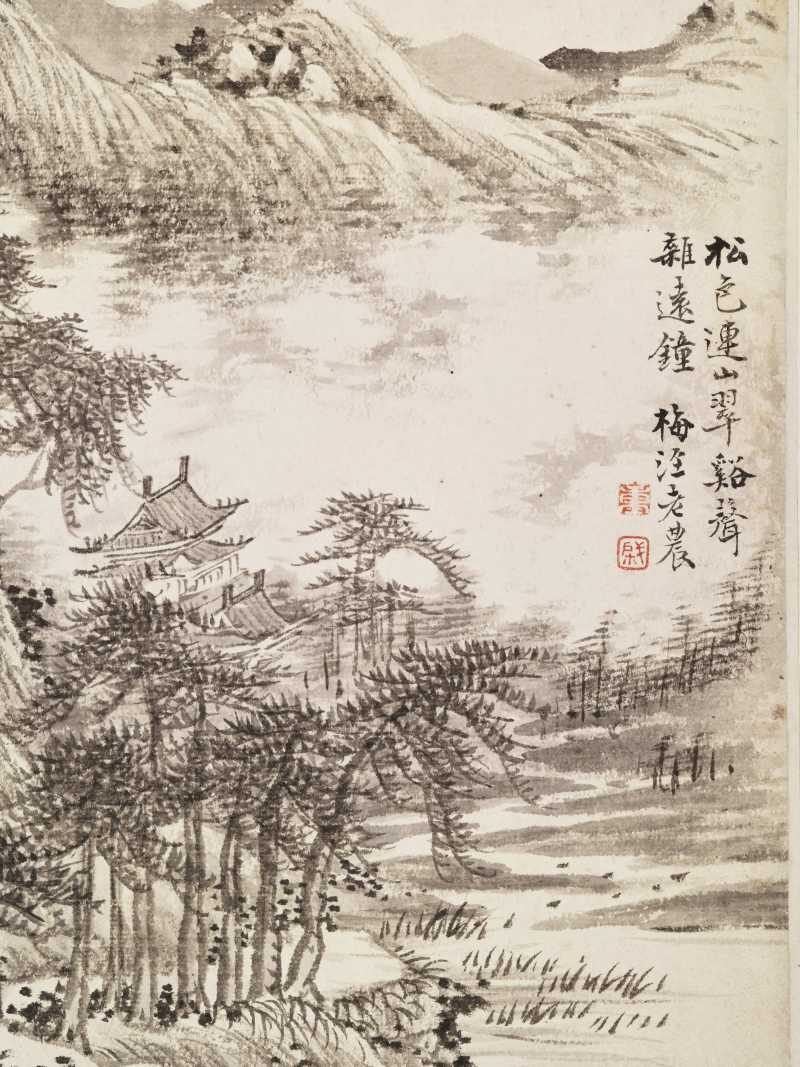 松色連山翠谿聲
雜遠鐘 梅涇老農